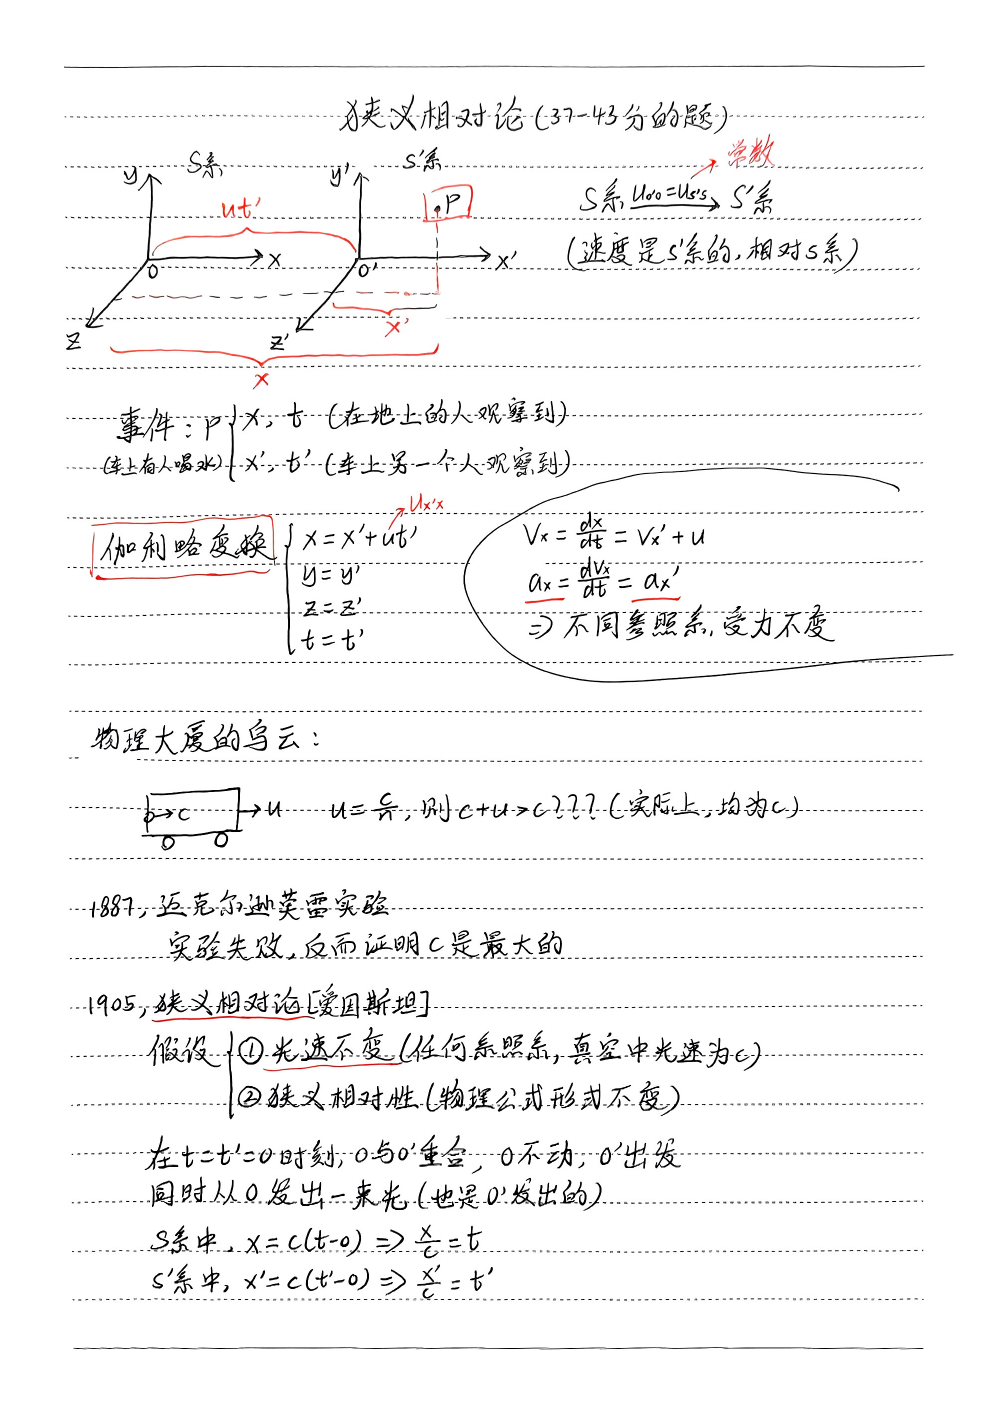 狭义相对论(37-43分的题)
S系
S'系
常数
y
y'
ut'
P
S系 u₀'₀=u_S'S → S'系
O
x
O'
x'
(速度是S'系的,相对S系)
z
z'
x'
x
事件:P { x, t (在地上的人观察到)
(车上有人喝水) x', t' (车上另一个人观察到)
u_x'x
伽利略变换 { x=x'+ut'
y=y'
z=z'
t=t'
Vx=dx/dt=Vx'+u
ax=dVx/dt=ax'
⇒不同参照系,受力不变
物理大厦的乌云:
→c →u u=c/n,则c+u>c???(实际上,均为c)
1887,迈克尔逊莫雷实验
实验失败,反而证明C是最大的
1905,狭义相对论[爱因斯坦]
假设 { ①光速不变(任何系照系,真空中光速为c)
②狭义相对性(物理公式形式不变)
在t=t'=0时刻,O与O'重合,O不动,O'出发
同时从O发出一束光(也是O'发出的)
S系中,x=c(t-0)⇒x/c=t
S'系中,x'=c(t'-0)⇒x'/c=t'